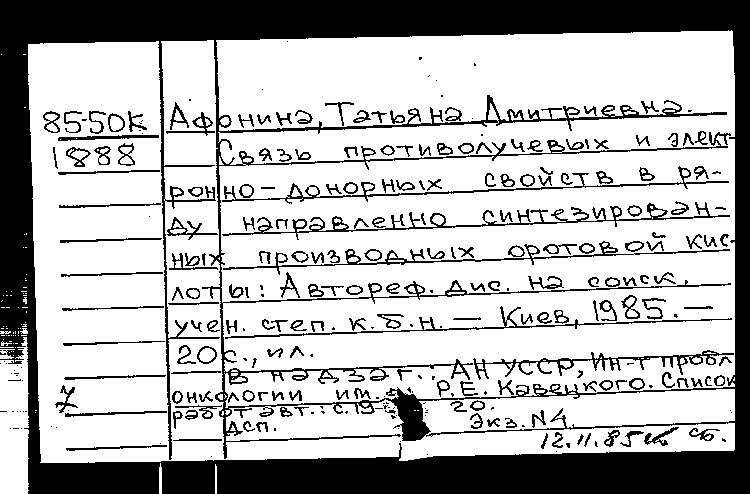 85-50К Афонина, Татьяна Дмитриевна.
1888 Связь противолучевых и элект-
ронно-донорных свойств в ря-
ду направленно синтезирован-
ных производных оротовой кис-
лоты: Автореф. дис. на соиск.
учен. степ. к.б.н. — Киев, 1985. —
20 с., ил.
В надзаг.: АН УССР, Ин-т пробл
онкологии им. Р.Е. Кавецкого. Список
работ авт.: с. 19 20.
Дсп. Экз. N4
12.11.85